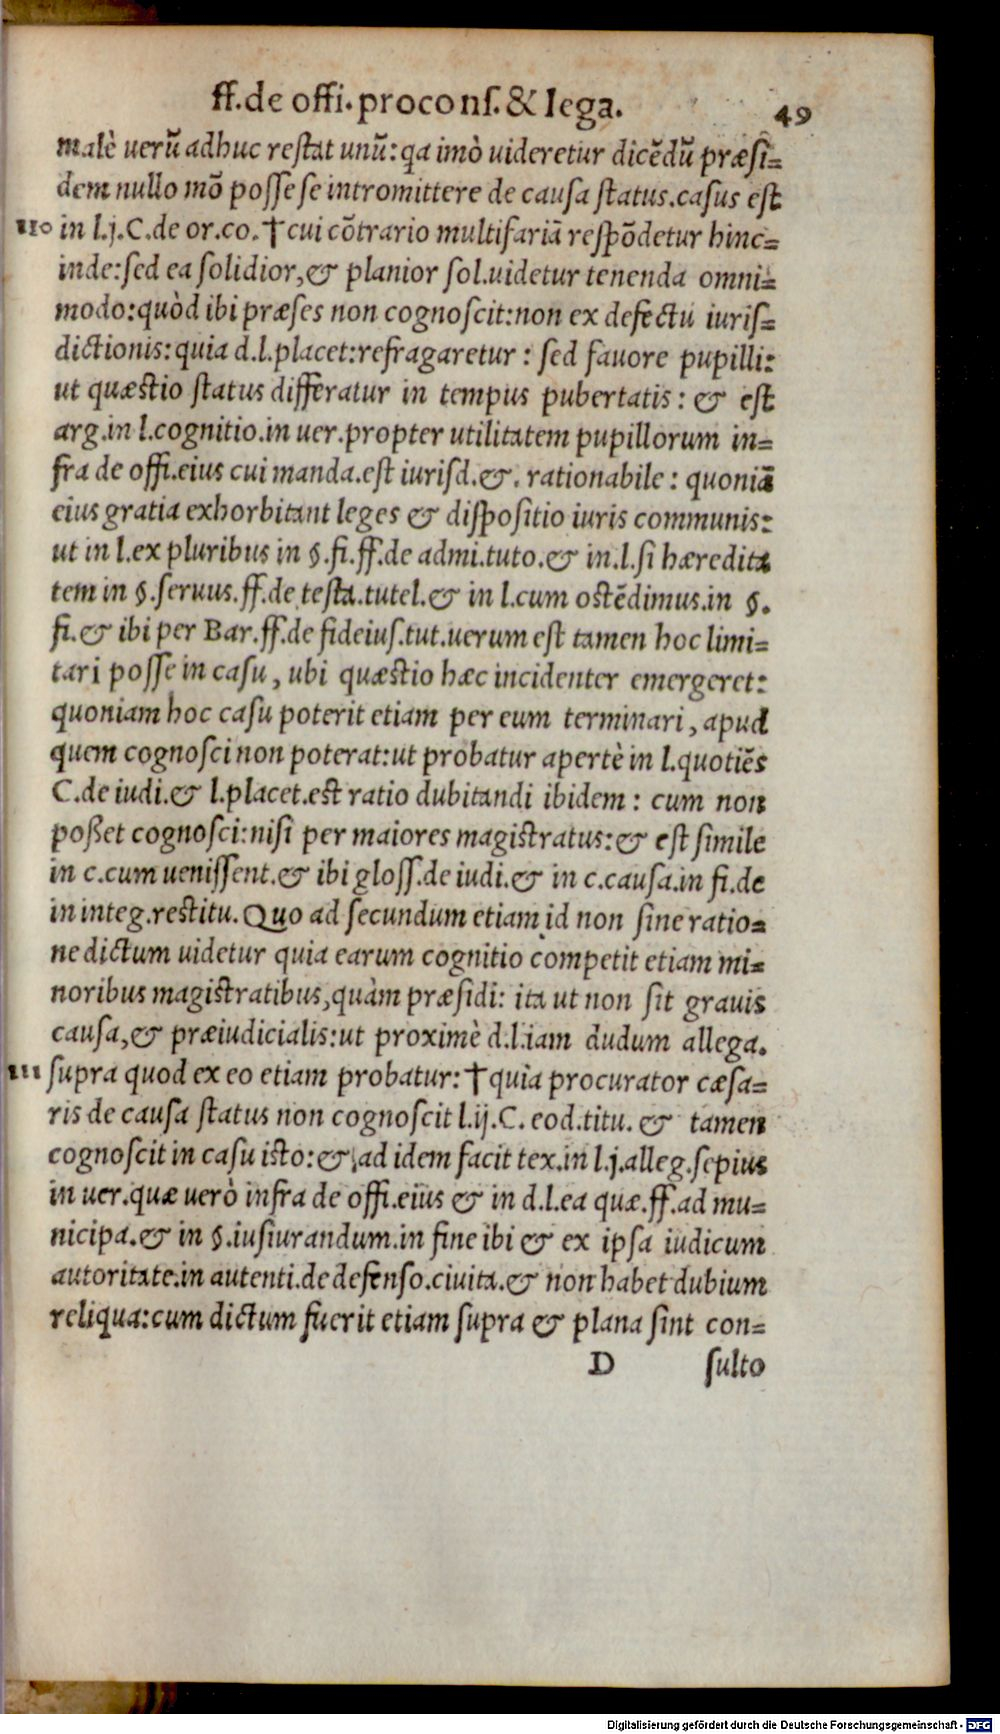 ff.de offi.procons.& lega. 49
malè uerũ adhuc restat unũ:qa imò uideretur dicẽdũ præsi=
dem nullo mõ posse se intromittere de causa status.casus est
110 in l.j.C.de or.co.†cui cõtrario multifariã respõdetur hinc=
inde:sed ea solidior,& planior sol.uidetur tenenda omni=
modo:quòd ibi præses non cognoscit:non ex defectu iuris=
dictionis:quia d.l.placet:refragaretur: sed fauore pupilli:
ut quæstio status differatur in tempus pubertatis: & est
arg.in l.cognitio.in uer.propter utilitatem pupillorum in=
fra de offi.eius cui manda.est iurisd.&. rationabile: quoniã
eius gratia exhorbitant leges & dispositio iuris communis:
ut in l.ex pluribus in §.fi.ff.de admi.tuto.& in.l.si hæredita
tem in §.seruus.ff.de testa.tutel.& in l.cum ostẽdimus.in §.
fi.& ibi per Bar.ff.de fideius.tut.uerum est tamen hoc limi=
tari posse in casu, ubi quæstio hæc incidenter emergeret:
quoniam hoc casu poterit etiam per eum terminari, apud
quem cognosci non poterat:ut probatur apertè in l.quotiẽs
C.de iudi.& l.placet.est ratio dubitandi ibidem: cum non
poßet cognosci:nisi per maiores magistratus:& est simile
in c.cum uenissent.& ibi gloss.de iudi.& in c.causa.in fi.de
in integ.restitu.Quo ad secundum etiam id non sine ratio=
ne dictum uidetur quia earum cognitio competit etiam mi=
noribus magistratibus,quàm præsidi: ita ut non sit grauis
causa,& præiudicialis:ut proximè d.l.iam dudum allega.
111 supra quod ex eo etiam probatur:†quia procurator cæsa=
ris de causa status non cognoscit l.ij.C. eod.titu. & tamen
cognoscit in casu isto:& ad idem facit tex.in l.j.alleg.sepius
in uer.quæ uerò infra de offi.eius & in d.l.ea quæ.ff.ad mu=
nicipa.& in §.iusiurandum.in fine ibi & ex ipsa iudicum
autoritate.in autenti.de defenso.ciuita.& non habet dubium
reliqua:cum dictum fuerit etiam supra & plana sint con=
D sulto
Digitalisierung gefördert durch die Deutsche Forschungsgemeinschaft - DFG